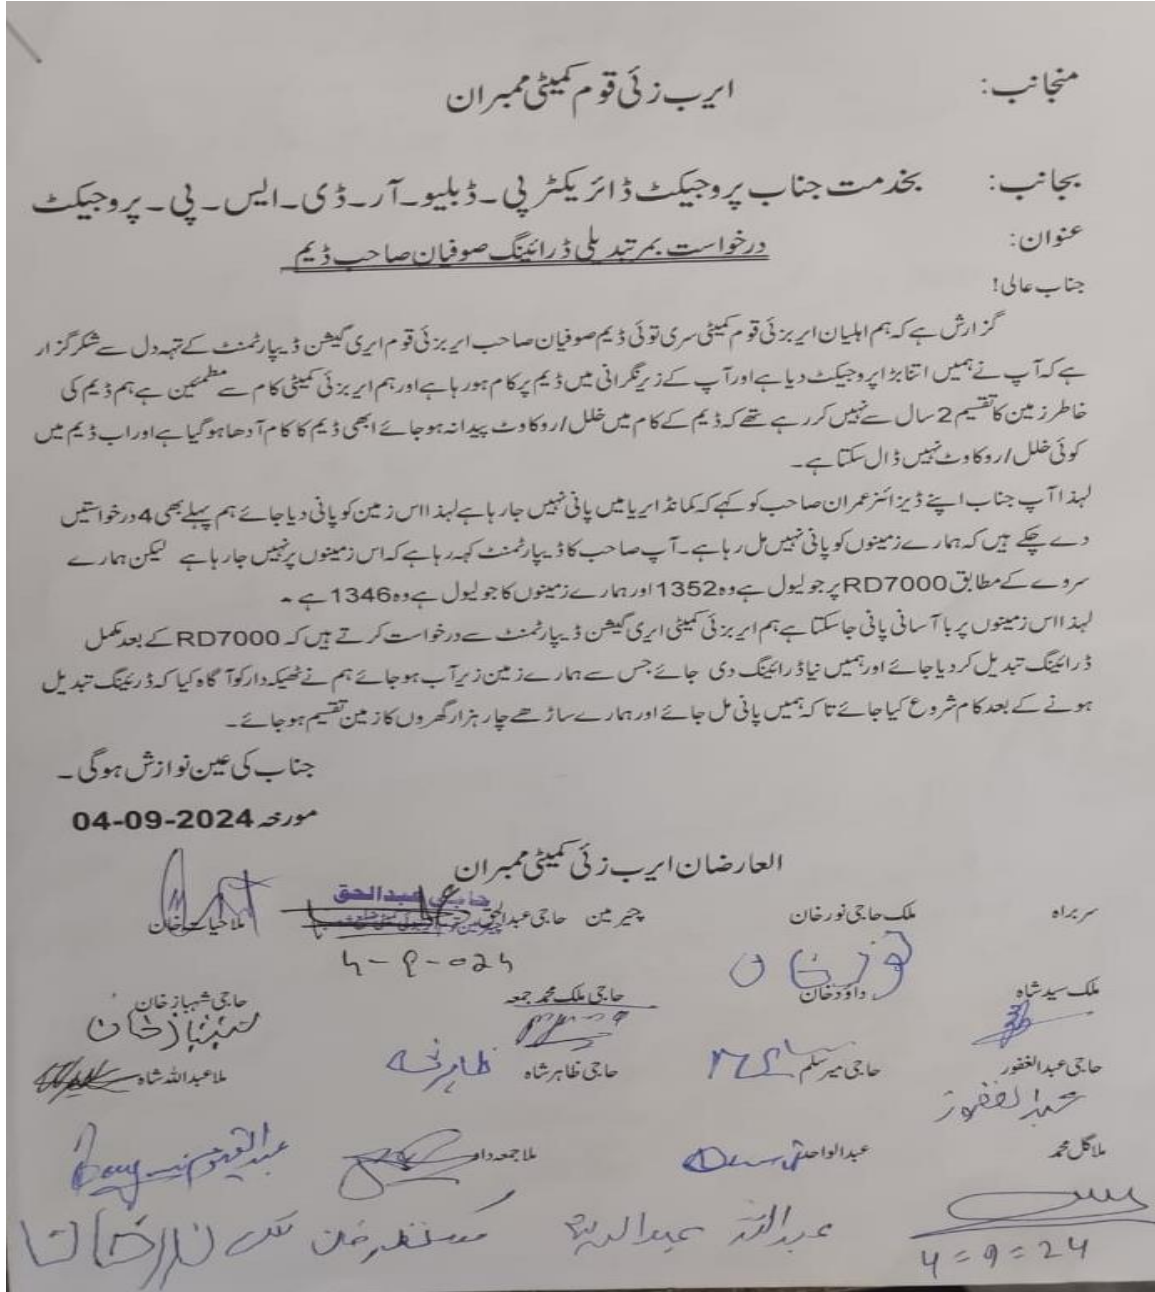 منجانب: ایرب زئی قوم کمیٹی ممبران
بجانب: بخدمت جناب پروجیکٹ ڈائریکٹر پی۔ڈبلیو۔آر۔ڈی۔ایس۔پی۔پروجیکٹ
عنوان: درخواست بمر تبدیلی ڈرائینگ صوفیان صاحب ڈیم
جناب عالی!
گزارش ہے کہ ہم اہلیان ایربزئی قوم کمیٹی سری توئی ڈیم صوفیان صاحب ایربزئی قوم ایری گیشن ڈیپارٹمنٹ کے تہہ دل سے شکر گزار
ہے کہ آپ نے ہمیں اتنا بڑا پروجیکٹ دیا ہے اور آپ کے زیر نگرانی میں ڈیم پر کام ہورہا ہے اور ہم ایربزئی کمیٹی کام سے مطمئین ہے ہم ڈیم کی
خاطر زمین کا تقسیم 2 سال سے نہیں کررہے تھے کہ ڈیم کے کام میں خلل/روکاوٹ پیدا نہ ہوجائے ابھی ڈیم کا کام آدھا ہوگیا ہے اور اب ڈیم میں
کوئی خلل/روکاوٹ نہیں ڈال سکتا ہے۔
لہذا آپ جناب اپنے ڈیزائنر عمران صاحب کو کہے کہ کمانڈ ایریا میں پانی نہیں جارہا ہے لہذا اس زمین کو پانی دیا جائے ہم پہلے بھی 4 درخواستیں
دے چکے ہیں کہ ہمارے زمینوں کو پانی نہیں مل رہا ہے۔آپ صاحب کا ڈیپارٹمنٹ کہہ رہا ہے کہ اس زمینوں پر نہیں جارہا ہے لیکن ہمارے
سروے کے مطابق RD7000 پر جو لیول ہے وہ 1352 اور ہمارے زمینوں کا جو لیول ہے وہ 1346 ہے ۔
لہذا اس زمینوں پر با آسانی پانی جاسکتا ہے ہم ایربزئی کمیٹی ایری گیشن ڈیپارٹمنٹ سے درخواست کرتے ہیں کہ RD7000 کے بعد مکمل
ڈرائینگ تبدیل کردیا جائے اور ہمیں نیا ڈرائینگ دی جائے جس سے ہمارے زمین زیر آب ہوجائے ہم نے ٹھیکہ دار کو آگاہ کیا کہ ڈرئینگ تبدیل
ہونے کے بعد کام شروع کیا جائے تا کہ ہمیں پانی مل جائے اور ہمارے ساڑھے چار ہزار گھروں کا زمین تقسیم ہوجائے۔
جناب کی عین نوازش ہوگی ۔
مورخہ 04-09-2024
العارضان ایرب زئی کمیٹی ممبران
سربراہ ملک حاجی نور خان چئیرمین حاجی عبدالحق ملا حیات خان
حاجی عبدالحق
4-9-024
نور خان
ملک سید شاہ داؤد خان حاجی ملک محمد جمعہ حاجی شہباز خان
شہباز خان
حاجی عبدالغفور حاجی میر سلم حاجی ظاہر شاہ ملا عبداللہ شاہ
عبدالغفور
ملا گل محمد عبدالواحد ملا جمعہ داد
عبدالقیوم
عبداللہ
4=9=24